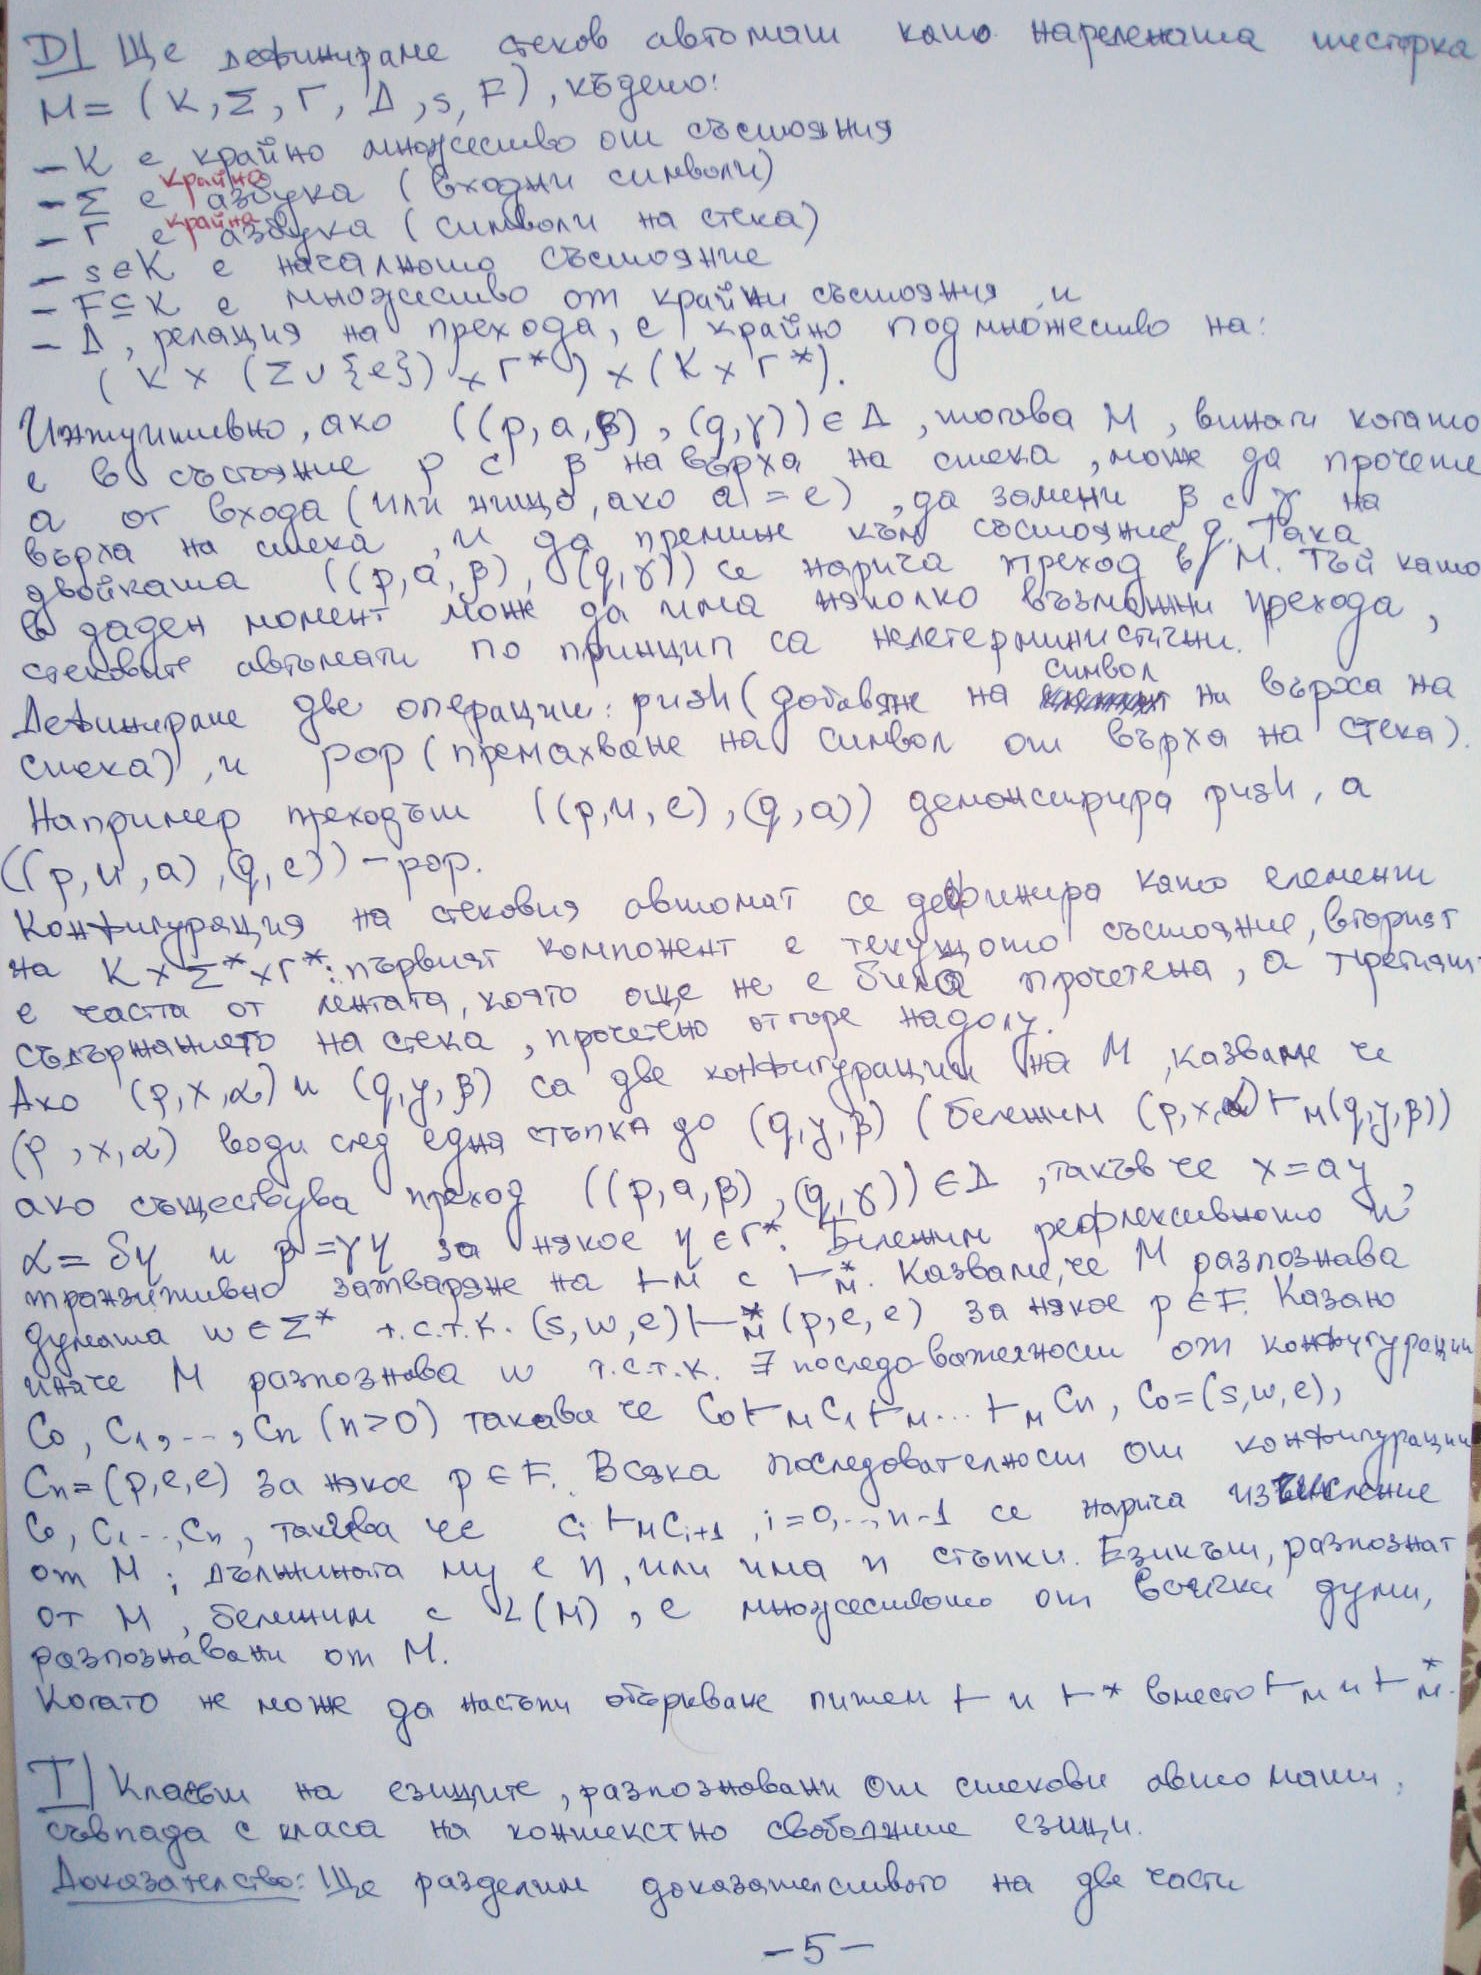 D| Ще дефинираме стеков автомат като наредената шесторка
M = (K, Σ, Γ, Δ, s, F), където:
– K е крайно множество от състояния
– Σ е крайна азбука (входни символи)
– Γ е крайна азбука (символи на стека)
– s∈K е началното състояние
– F⊆K е множество от крайни състояния и
– Δ, релация на прехода, е крайно подмножество на:
(K × (Σ∪{e}) × Γ*) × (K × Γ*).
Интуитивно, ако ((p,a,β),(q,γ))∈Δ, тогава M, винаги когато
е в състояние p с β на върха на стека, може да прочете
a от входа (или нищо, ако a=e), да замени β с γ на
върха на стека, и да премине към състояние q. Така
двойката ((p,a,β),(q,γ)) се нарича преход в M. Тъй като
в даден момент може да има няколко възможни прехода,
стековите автомати по принцип са недетерминистични.
Дефинираме две операции: push (добавяне на символ на върха на
стека), и pop (премахване на символ от върха на стека).
Например преходът ((p,u,e),(q,a)) демонстрира push, а
((p,u,a),(q,e)) – pop.
Конфигурация на стековия автомат се дефинира като елемент
на K×Σ*×Γ*: първият компонент е текущото състояние, вторият
е частта от лентата, която още не е била прочетена, а третият
съдържанието на стека, прочетено отгоре надолу.
Ако (p,x,α) и (q,y,β) са две конфигурации на M, казваме че
(p,x,α) води след една стъпка до (q,y,β) (бележим (p,x,α)⊢M(q,y,β))
ако съществува преход ((p,a,β),(q,γ))∈Δ, такъв че x=ay,
α=δη и β=γη за някое η∈Γ*. Бележим рефлексивното и
транзитивно затваряне на ⊢M с ⊢*M. Казваме, че M разпознава
думата w∈Σ* т.с.т.к. (s,w,e)⊢*M(p,e,e) за някое p∈F. Казано
иначе M разпознава w т.с.т.к. ∃ последователност от конфигурации
C0, C1,..., Cn (n>0) такава че C0⊢M C1⊢M...⊢M Cn, C0=(s,w,e),
Cn=(p,e,e) за някое p∈F. Всяка последователност от конфигурации
C0, C1..., Cn, такива че Ci⊢M Ci+1, i=0,..,n-1 се нарича изчисление
от M; дължината му е n, или има n стъпки. Езикът, разпознат
от M, бележим с L(M), е множеството от всички думи,
разпознавани от M.
Когато не може да настъпи объркване пишем ⊢ и ⊢* вместо ⊢M и ⊢*M.
T| Класът на езиците, разпознавани от стекови автомати,
съвпада с класа на контекстно свободните езици.
Доказателство: Ще разделим доказателството на две части
– 5 –